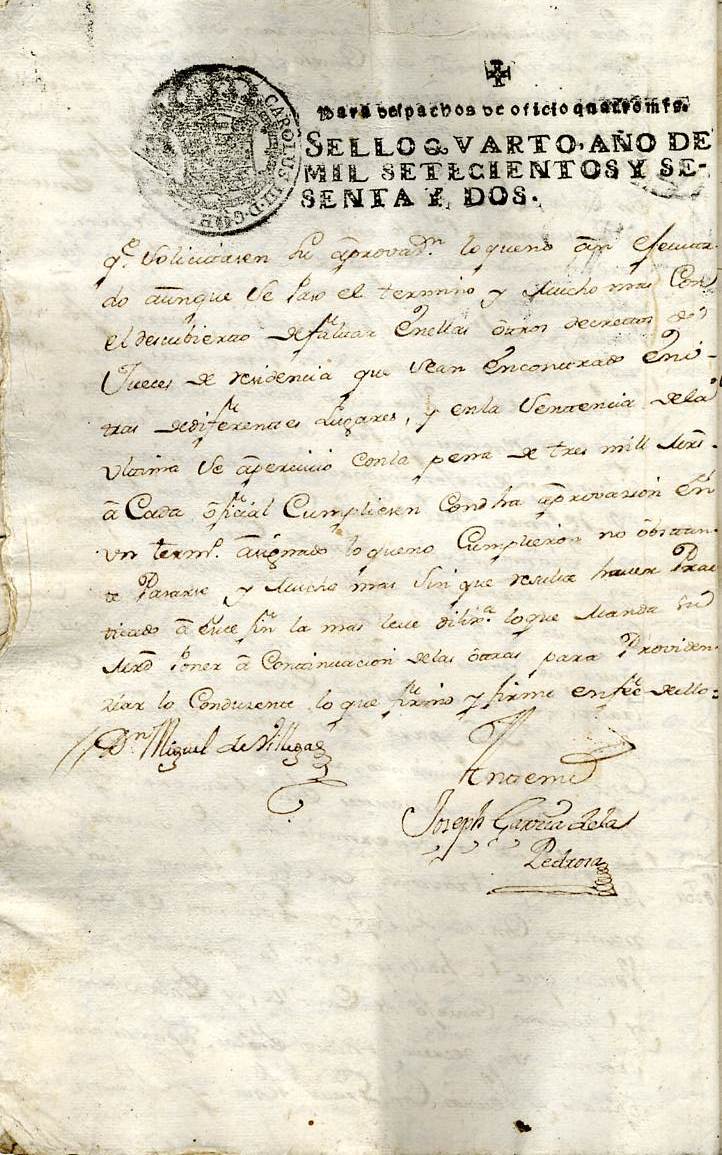 CAROLUS III D. G.
Para despachos de oficio quatro mrs.
SELLO QVARTO, AÑO DE
MIL SETECIENTOS Y SE-
SENTA Y DOS.
qe. Solicittasen su aprovazn. lo queno an ejecuta-
do aunque se paso el termino y Mucho mas Con
el descubierto de faltar enellas otros decretos de
Jueces de residencia que sean encontrado en
tras de diferentes Lugares, y enla Sentencia dela
Ultima se apercivio conla pena de tres mill mrs.
a Cada oficial Cumpliesen Condha aprovazion en
un termo. asignado lo queno Cumplieron no obstan-
te Pasarse y Mucho mas Sin que resulte haver Prac
ticado a este fin la mas leve dilixa. lo que Manda Su
Mrd Poner a Continuacion delas otras para Providen
ziar lo Conducente lo que firmo y firme enfee dello=
Dn. Miguel de Villegas
Antemi
Joseph Garcia dela
Pedrosa